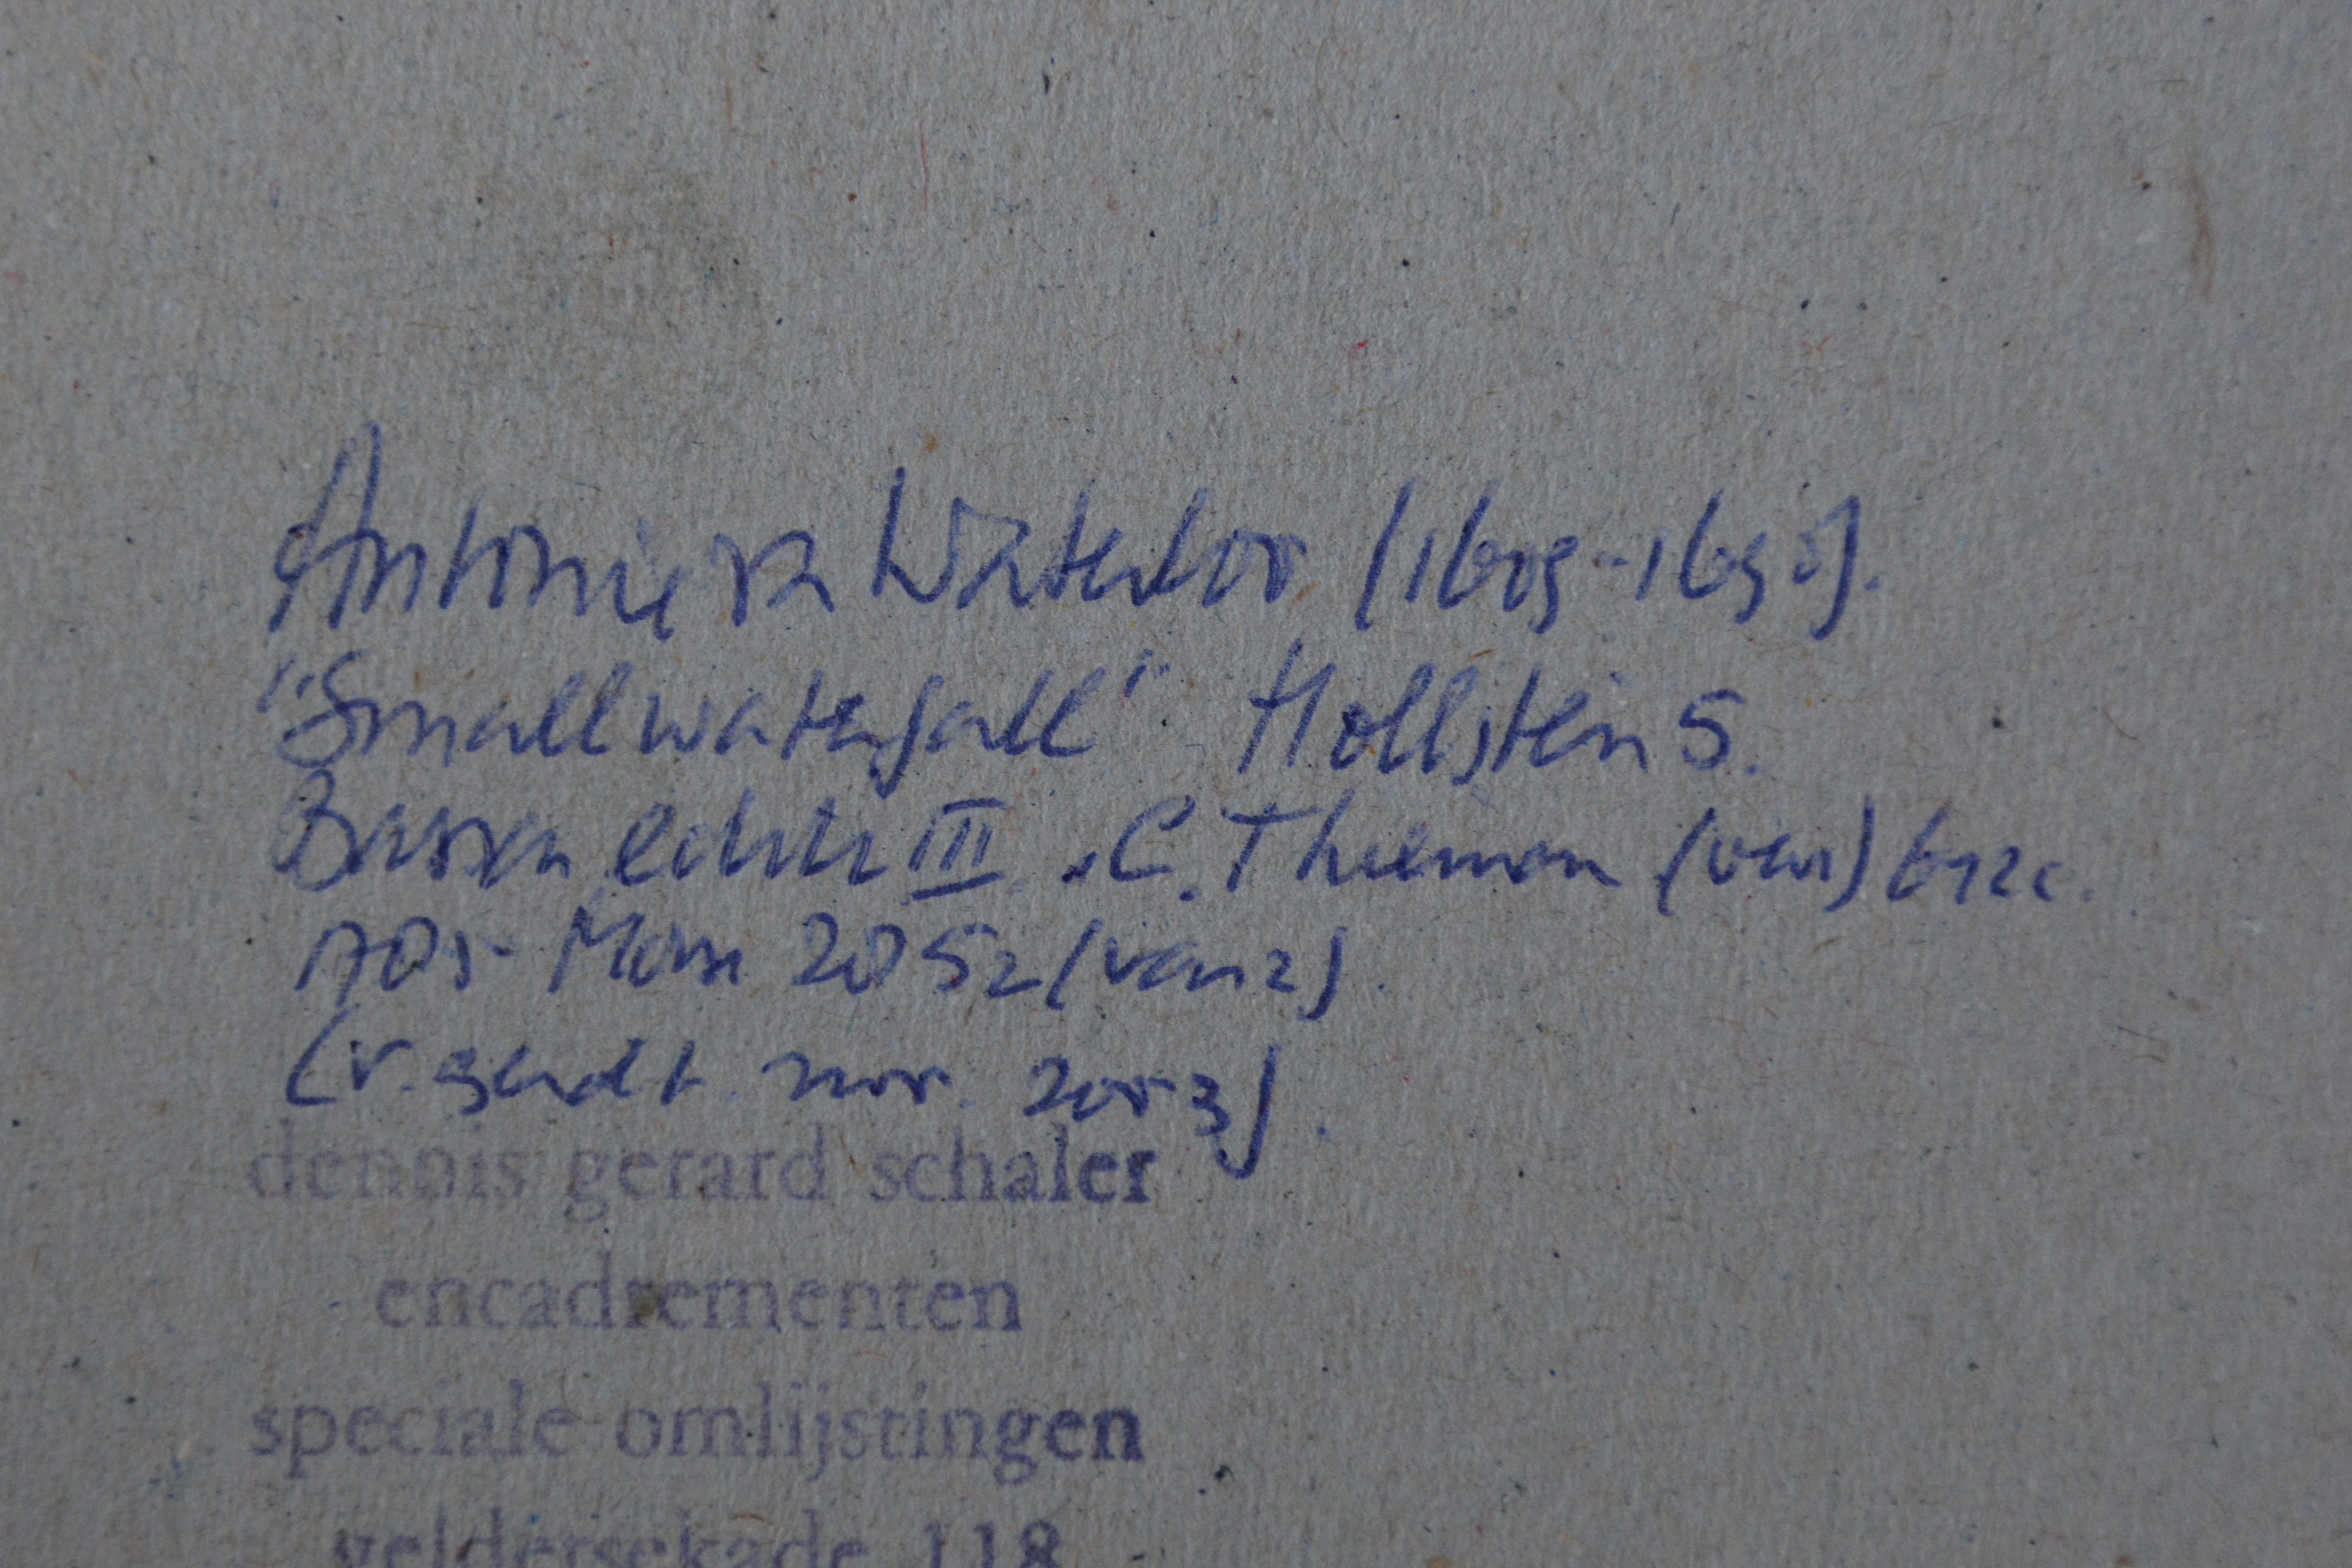 Antonie v. Waterloo (1609-1690).
"Small waterfall" Hollstein 5.
Basan III C. Thieman
2052
(v. nov. 2003).
dennis gerard schaler
encadrementen
speciale omlijstingen
geldersekade 118